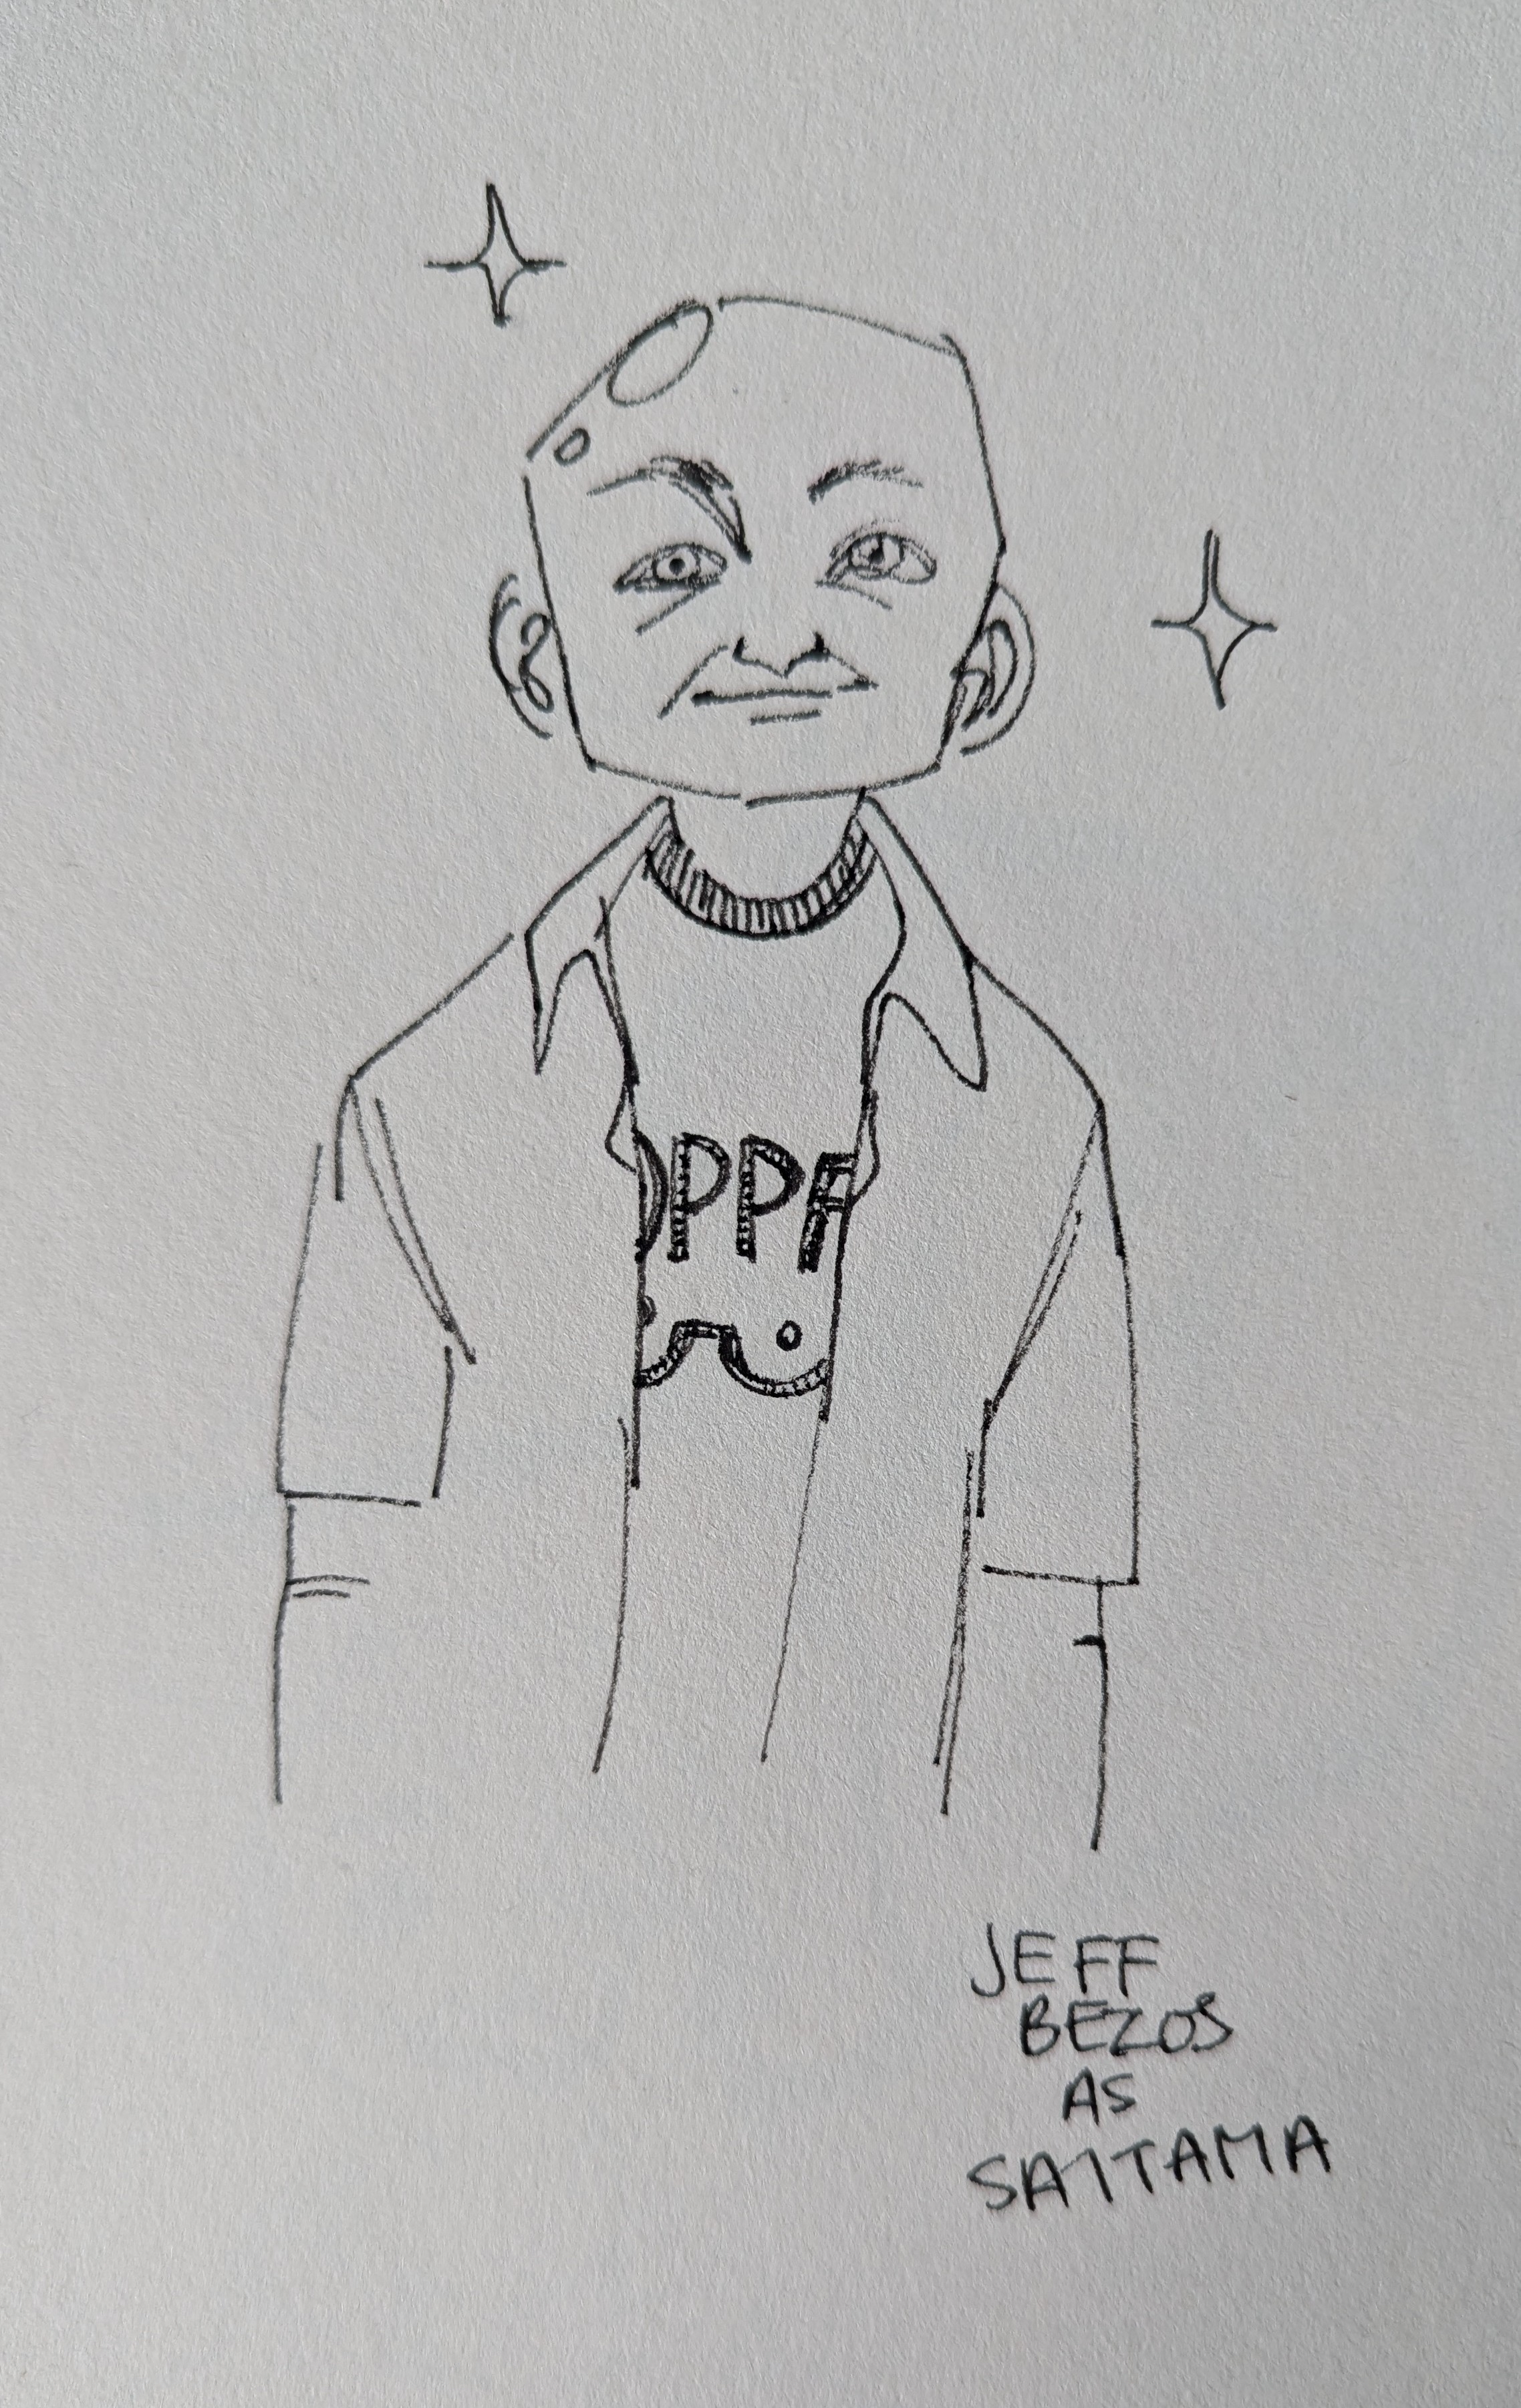 OPPF
JEFF
BEZOS
AS
SAITAMA